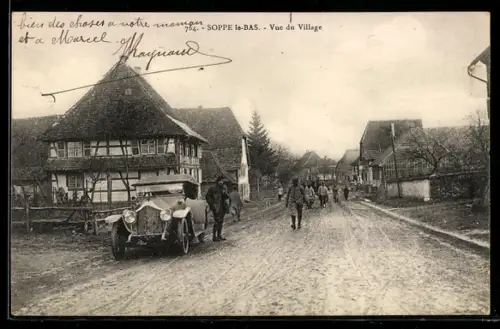 bière des choses a votre maman
et a Marcel
704. - SOPPE le-BAS. - Vue du Village